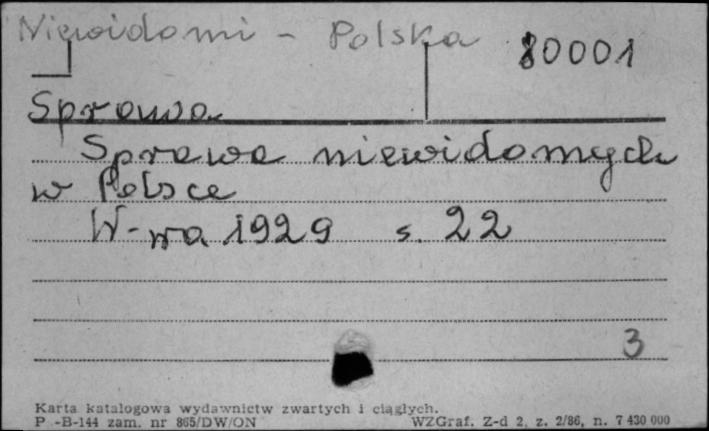 Niewidomi - Polska 80001
Sprawa
Sprawa niewidomych
w Polsce
W-wa 1929 s. 22
3
Karta katalogowa wydawnictw zwartych i ciągłych.
P -B-144 zam. nr 865/DW/ON WZGraf. Z-d 2, z. 2/86, n. 7 430 000